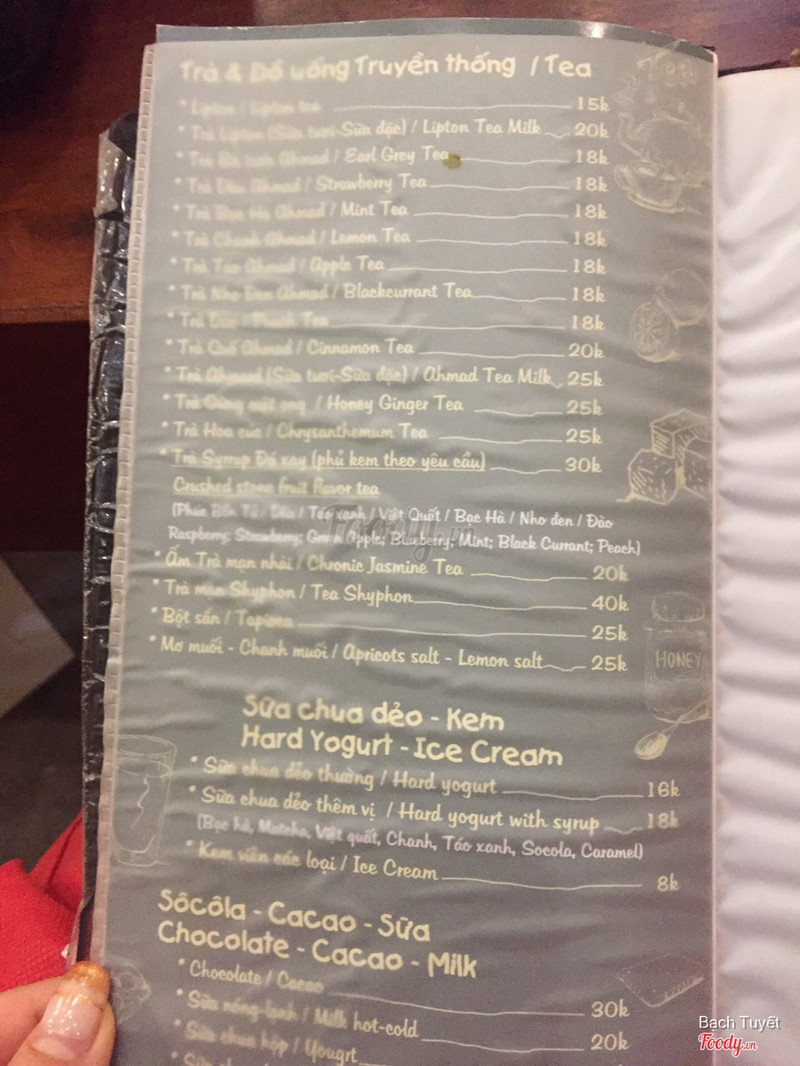 Trà & Đồ uống Truyền thống / Tea
* Lipton / Lipton tea 15k
* Trà Lipton (Sữa tươi-Sữa đặc) / Lipton Tea Milk 20k
* Trà Bá tước Ahmad / Earl Grey Tea 18k
* Trà Dâu Ahmad / Strawberry Tea 18k
* Trà Bạc Hà Ahmad / Mint Tea 18k
* Trà Chanh Ahmad / Lemon Tea 18k
* Trà Táo Ahmad / Apple Tea 18k
* Trà Nho Đen Ahmad / Blackcurrant Tea 18k
* Trà Đào - Peach Tea 18k
* Trà Quế Ahmad / Cinnamon Tea 20k
* Trà Ahmad (Sữa tươi-Sữa đặc) / Ahmad Tea Milk 25k
* Trà Gừng mật ong / Honey Ginger Tea 25k
* Trà Hoa cúc / Chrysanthemum Tea 25k
* Trà Syrrup Đá xay (phủ kem theo yêu cầu) 30k
Crushed stone fruit flavor tea
(Phúc Bồn Tử / Dâu / Táo xanh / Việt Quất / Bạc Hà / Nho đen / Đào
Raspberry; Strawberry; Green Apple; Blueberry; Mint; Black Currant; Peach)
* Ấm Trà mạn nhài / Chronic Jasmine Tea 20k
* Trà mạn Shyphon / Tea Shyphon 40k
* Bột sắn / Tapioca 25k
* Mơ muối - Chanh muối / Apricots salt - Lemon salt 25k
HONEY
Sữa chua dẻo - Kem
Hard Yogurt - Ice Cream
* Sữa chua dẻo thường / Hard yogurt 16k
* Sữa chua dẻo thêm vị / Hard yogurt with syrup 18k
(Bạc hà, Matcha, Việt quất, Chanh, Táo xanh, Socola, Caramel)
* Kem viên các loại / Ice Cream 8k
Sôcôla - Cacao - Sữa
Chocolate - Cacao - Milk
* Chocolate / Cacao 30k
* Sữa nóng-lạnh / Milk hot-cold 20k
* Sữa chua hộp / Yougrt
Foody.vn
Bach Tuyết
Foody.vn